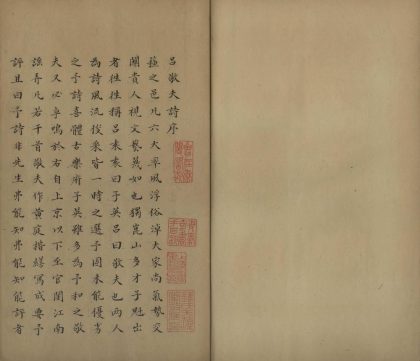 呂敬夫詩序
蘇之邑凡六大率風浮俗淖夫家尚氣勢交
關貴人視文藝蔑如也獨崑山多才子魁出
者往往稱呂袁袁曰子英呂曰敬夫也兩人
為詩風流俊采皆一時之選予固未能優劣
之予詩喜體古樂府子英雖多為予和之敬
夫又必争鳴於右自上京以下至官閩江南
謡弄凡若干首敬夫作黄庭楷繕寫成要予
評且曰予詩非先生弗能知弗能知能評者